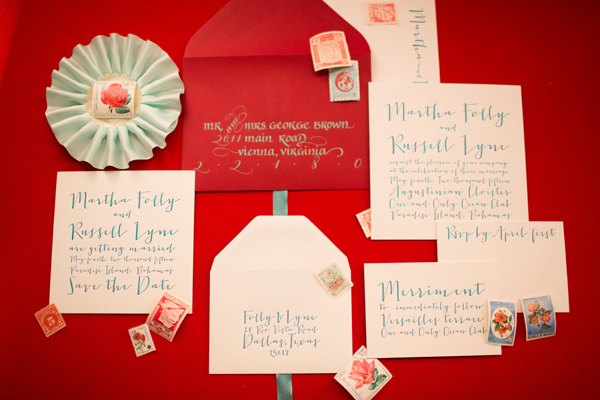 MR. and MRS. GEORGE BROWN
2011 MAIN ROAD
VIENNA, VIRGINIA
22180
Martha Folly
and
Russell Lyne
request the pleasure of your company
at the celebration of their marriage
May fourth, Two thousand fifteen
Augustinian Cloister
One and Only Ocean Club
Paradise Island, Bahamas
Martha Folly
and
Russell Lyne
are getting married
May fourth, two thousand fifteen
Paradise Island, Bahamas
Save the Date
Rsvp by April first
Folly & Lyne
Rio Vista Road
Dallas, Texas
Merriment
to immediately follow
Versailles Terrace
One and Only Ocean Club
5